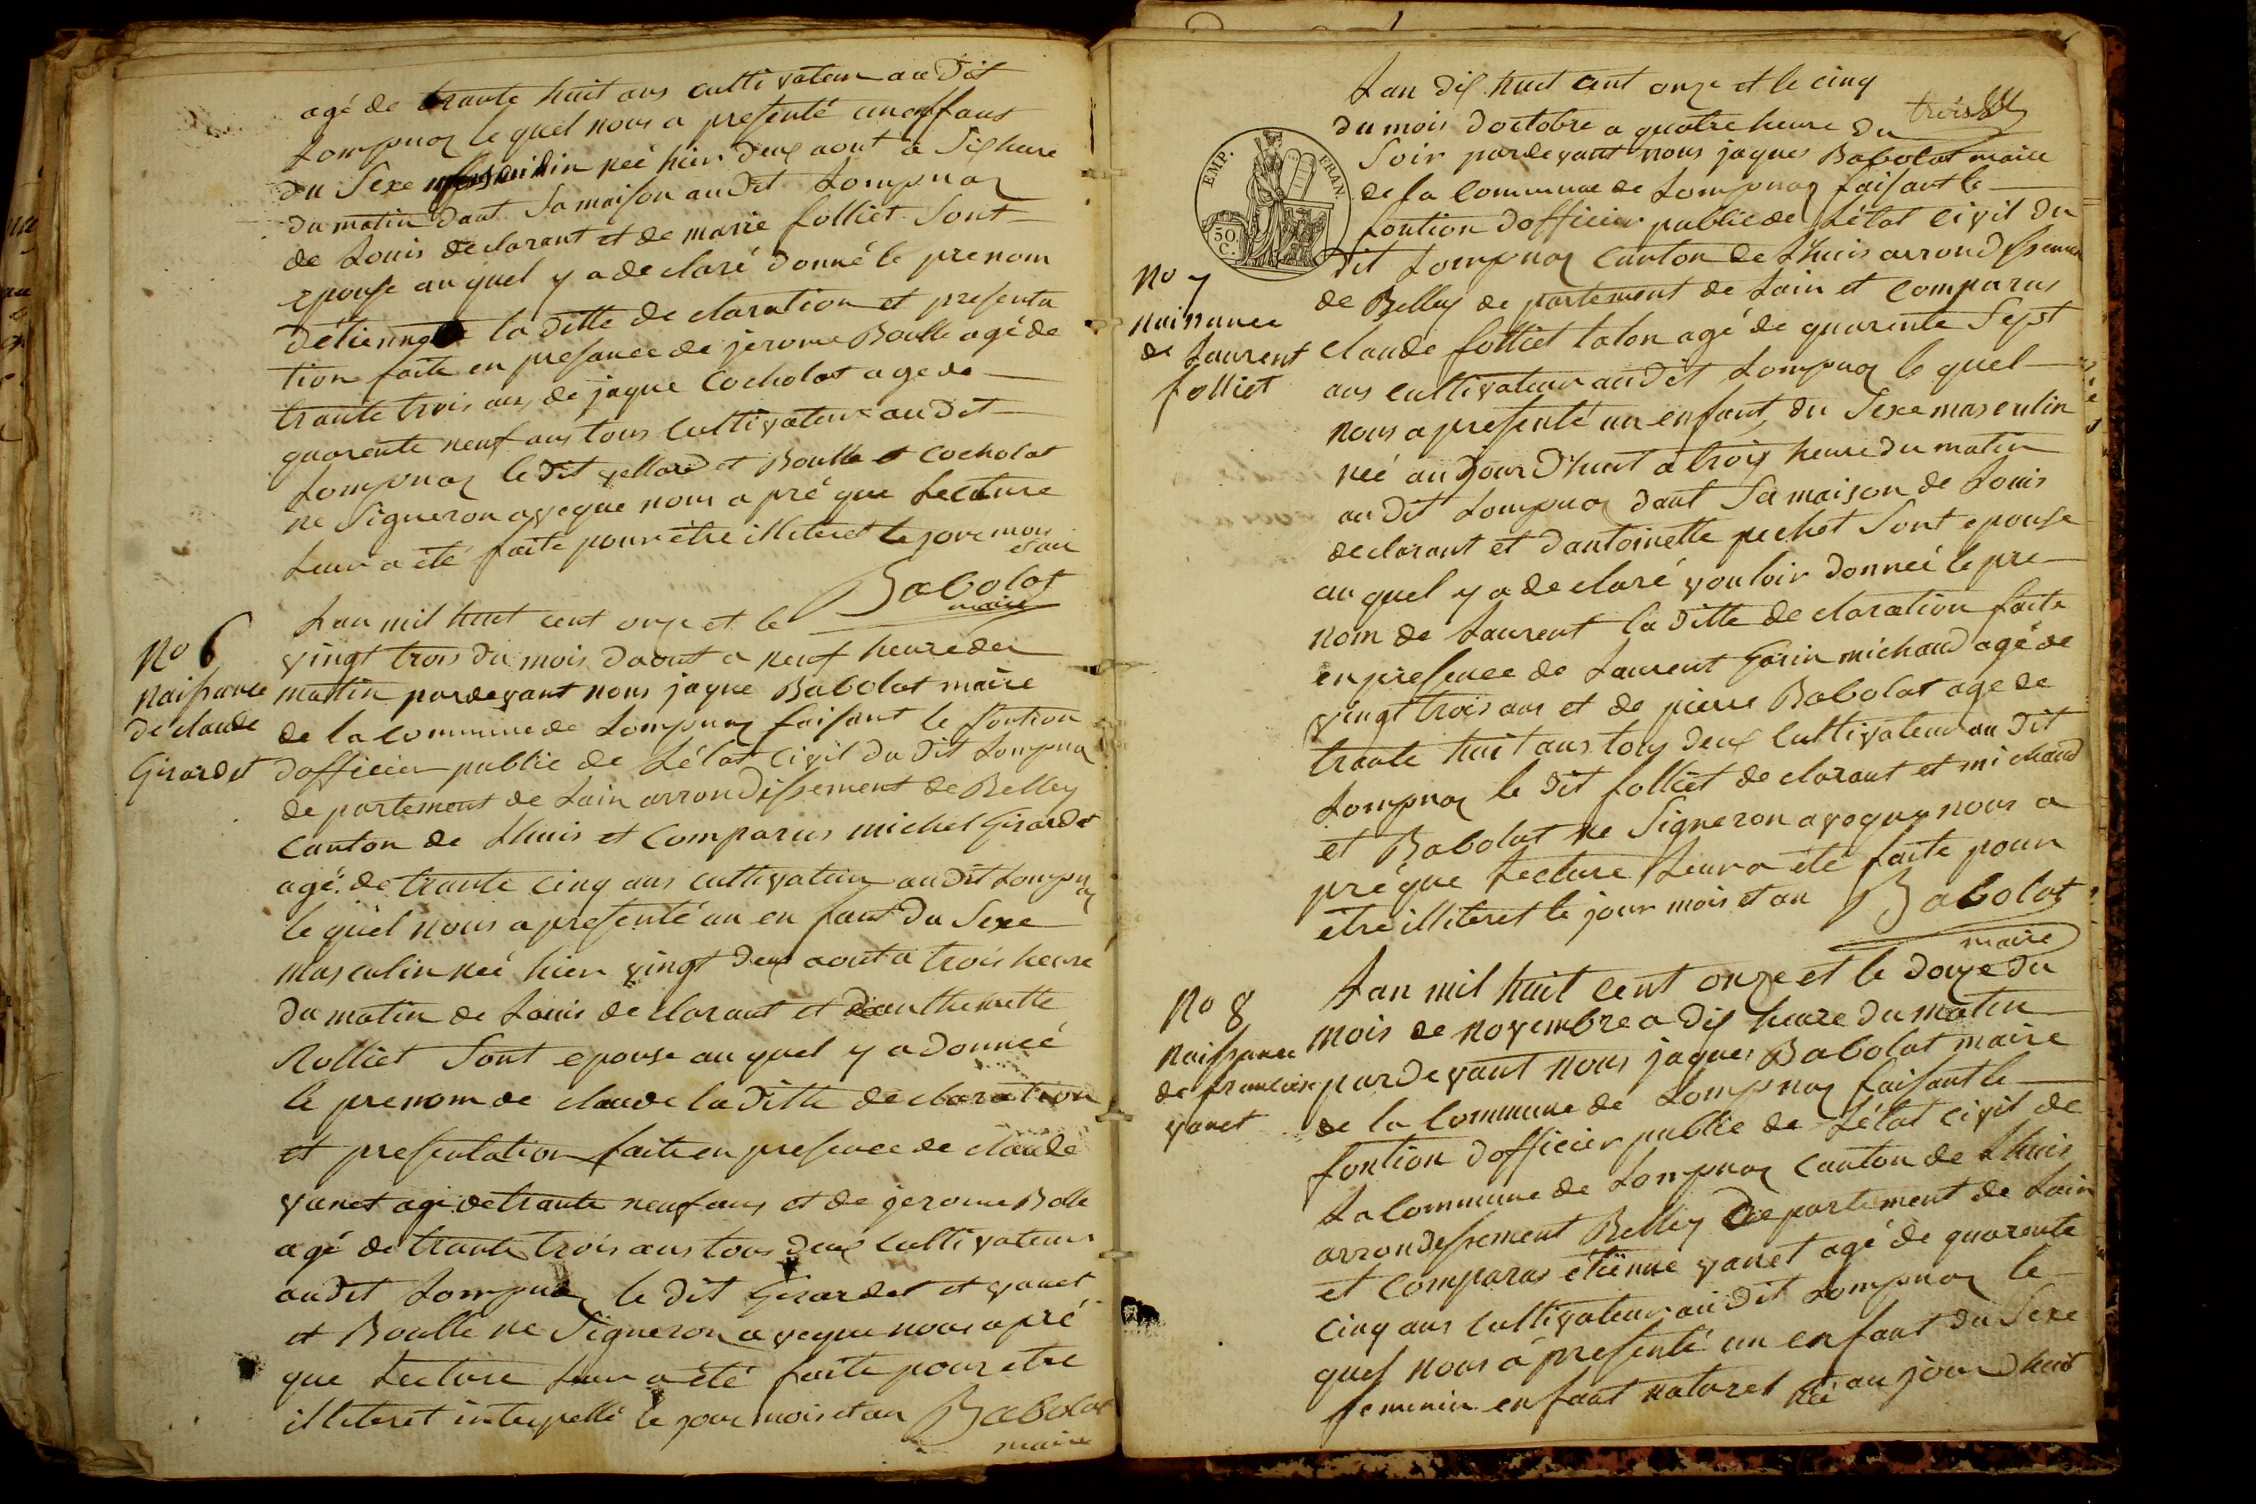 agé de trante huit ans cultivateur au dit
Lompnaz le quel nous a presenté un enffans
du Sexe masculin neé hier deux aout a Six heure
du matin dant Sa maison au dit Lompnaz
de Louis declarant et de marie folliet Sont
epouse au quel y a declaré donné le prenom
détienne la ditte declaration et presenta
tion faite en presance de jerome Boulle agé de
trante trois ans, de jaque Cocholat age de
quarente neuf ans tous Cultivateur au dit
Lompnaz le dit et Boulle et Cocholat
ne Signeron aveque nous apré que Lecture
Leur a été faite pour être illiteret le jour mois
et an
Babolat
maire
No 6
Naissance
de claude
Girardet
Lan mil huit cent onze et le
vingt trois du mois daout a neuf heure du
mattin pardevant nous jaque Babolat maire
de la commune de Lompnaz faisant le fontion
dofficier public de Létat Civil du dit Lompnaz
departement de Lain arrondissement de Belley
Canton de Lhuis et Comparus michel Girardet
agé de trante cinq ans cultivateur au dit Lompnaz
le quel nous a presenté un en fant du Sexe
masculin neé hier vingt deux aout a trois heure
du matin de Louis declarant et
Rolliet Sont epouse au quel y a donneé
le prenom de claude la ditte declaration
et presentation faite en presence de claude
vanet agé de trante neuf ans et de jerome Bolle
agé de trante trois ans tous deux Cultivateur
au dit Lompnaz le dit Girardet et vanet
et Boulle ne Signeron aveque nous apré
que Lecture Leur a été faite pour etre
illiteret interpellé le jour mois et an Babolat
maire
trois
EMP. FRAN.
50. C.
Lan dix huit cent onze et le cinq
du mois doctobre a quatre heure du
Soir pardevant nous jaques Babolat maire
de la Commune de Lompnaz faisant le
fontion dofficier public de Létat Civil du
dit Lompnaz Canton de Lhuis arrondissement
de Belley departement de Lain et Comparus
No 7
Naissance
de Laurent
folliet
claude folliet talon agé de quarente Sept
ans cultivateur au dit Lompnaz le quel
nous a presenté un enfant, du Sexe masculin
neé aujourd'huit a trois heure du matin
au dit Lompnaz dant Sa maison de Louis
declarant et dantoinette pechet Sont epouse
au quel y a declaré vouloir donneé le pre
nom de Laurent la ditte declaration faite
en presence de Laurent Garin michaud agé de
vingt trois ans et de pierre Babolat age de
trante huit ans tous deux Cultivateur au dit
Lompnaz le dit folliet declarant et michaud
et Babolat ne Signeron aveque nous a
pré que Lecture Leur a été faite pour
etre illiteret le jour mois et an Babolat
maire
No 8
Naissance
de francoise
vanet
Lan mil huit cent onze et le douze du
mois de novembre a dix heure du matin
pardevant nous jaques Babolat maire
de la Commune de Lompnaz faisant le
fontion dofficier public de Létat Civil de
La Commune de Lompnaz Canton de Lhuis
arrondissement Belley Departement de Lain
et Comparus étienne vanet agé de quarente
cinq ans Cultivateur au dit Lompnaz le
quel nous a presenté un enfant du Sexe
feminin enfant naturel neé au jour dhuit